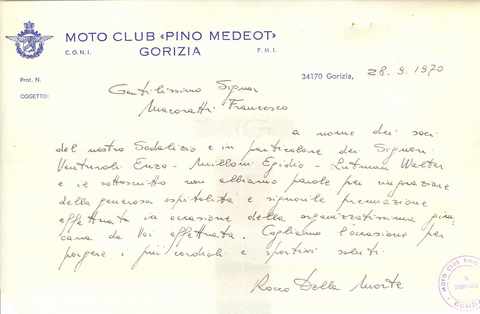 MOTO CLUB «PINO MEDEOT»
C.O.N.I. GORIZIA F.M.I.
Prot. N.
OGGETTO:
34170 Gorizia, 28.9.1970
Gentilissimo Signor
Macoratti Francesco
a nome dei soci
del nostro Sodalizio e in particolare dei Signori
Venturoli Enzo - Milloni Egidio - Lutman Walter
e il sottoscritto non abbiamo parole per ringraziare
della generosa ospitalità e signorile premiazione
effettuata in occasione della organizzatissima gin,
cana da Voi effettuata. Cogliamo l'occasione per
porgere i più cordiali e sportivi saluti.
Rocco Della Morte
MOTO CLUB